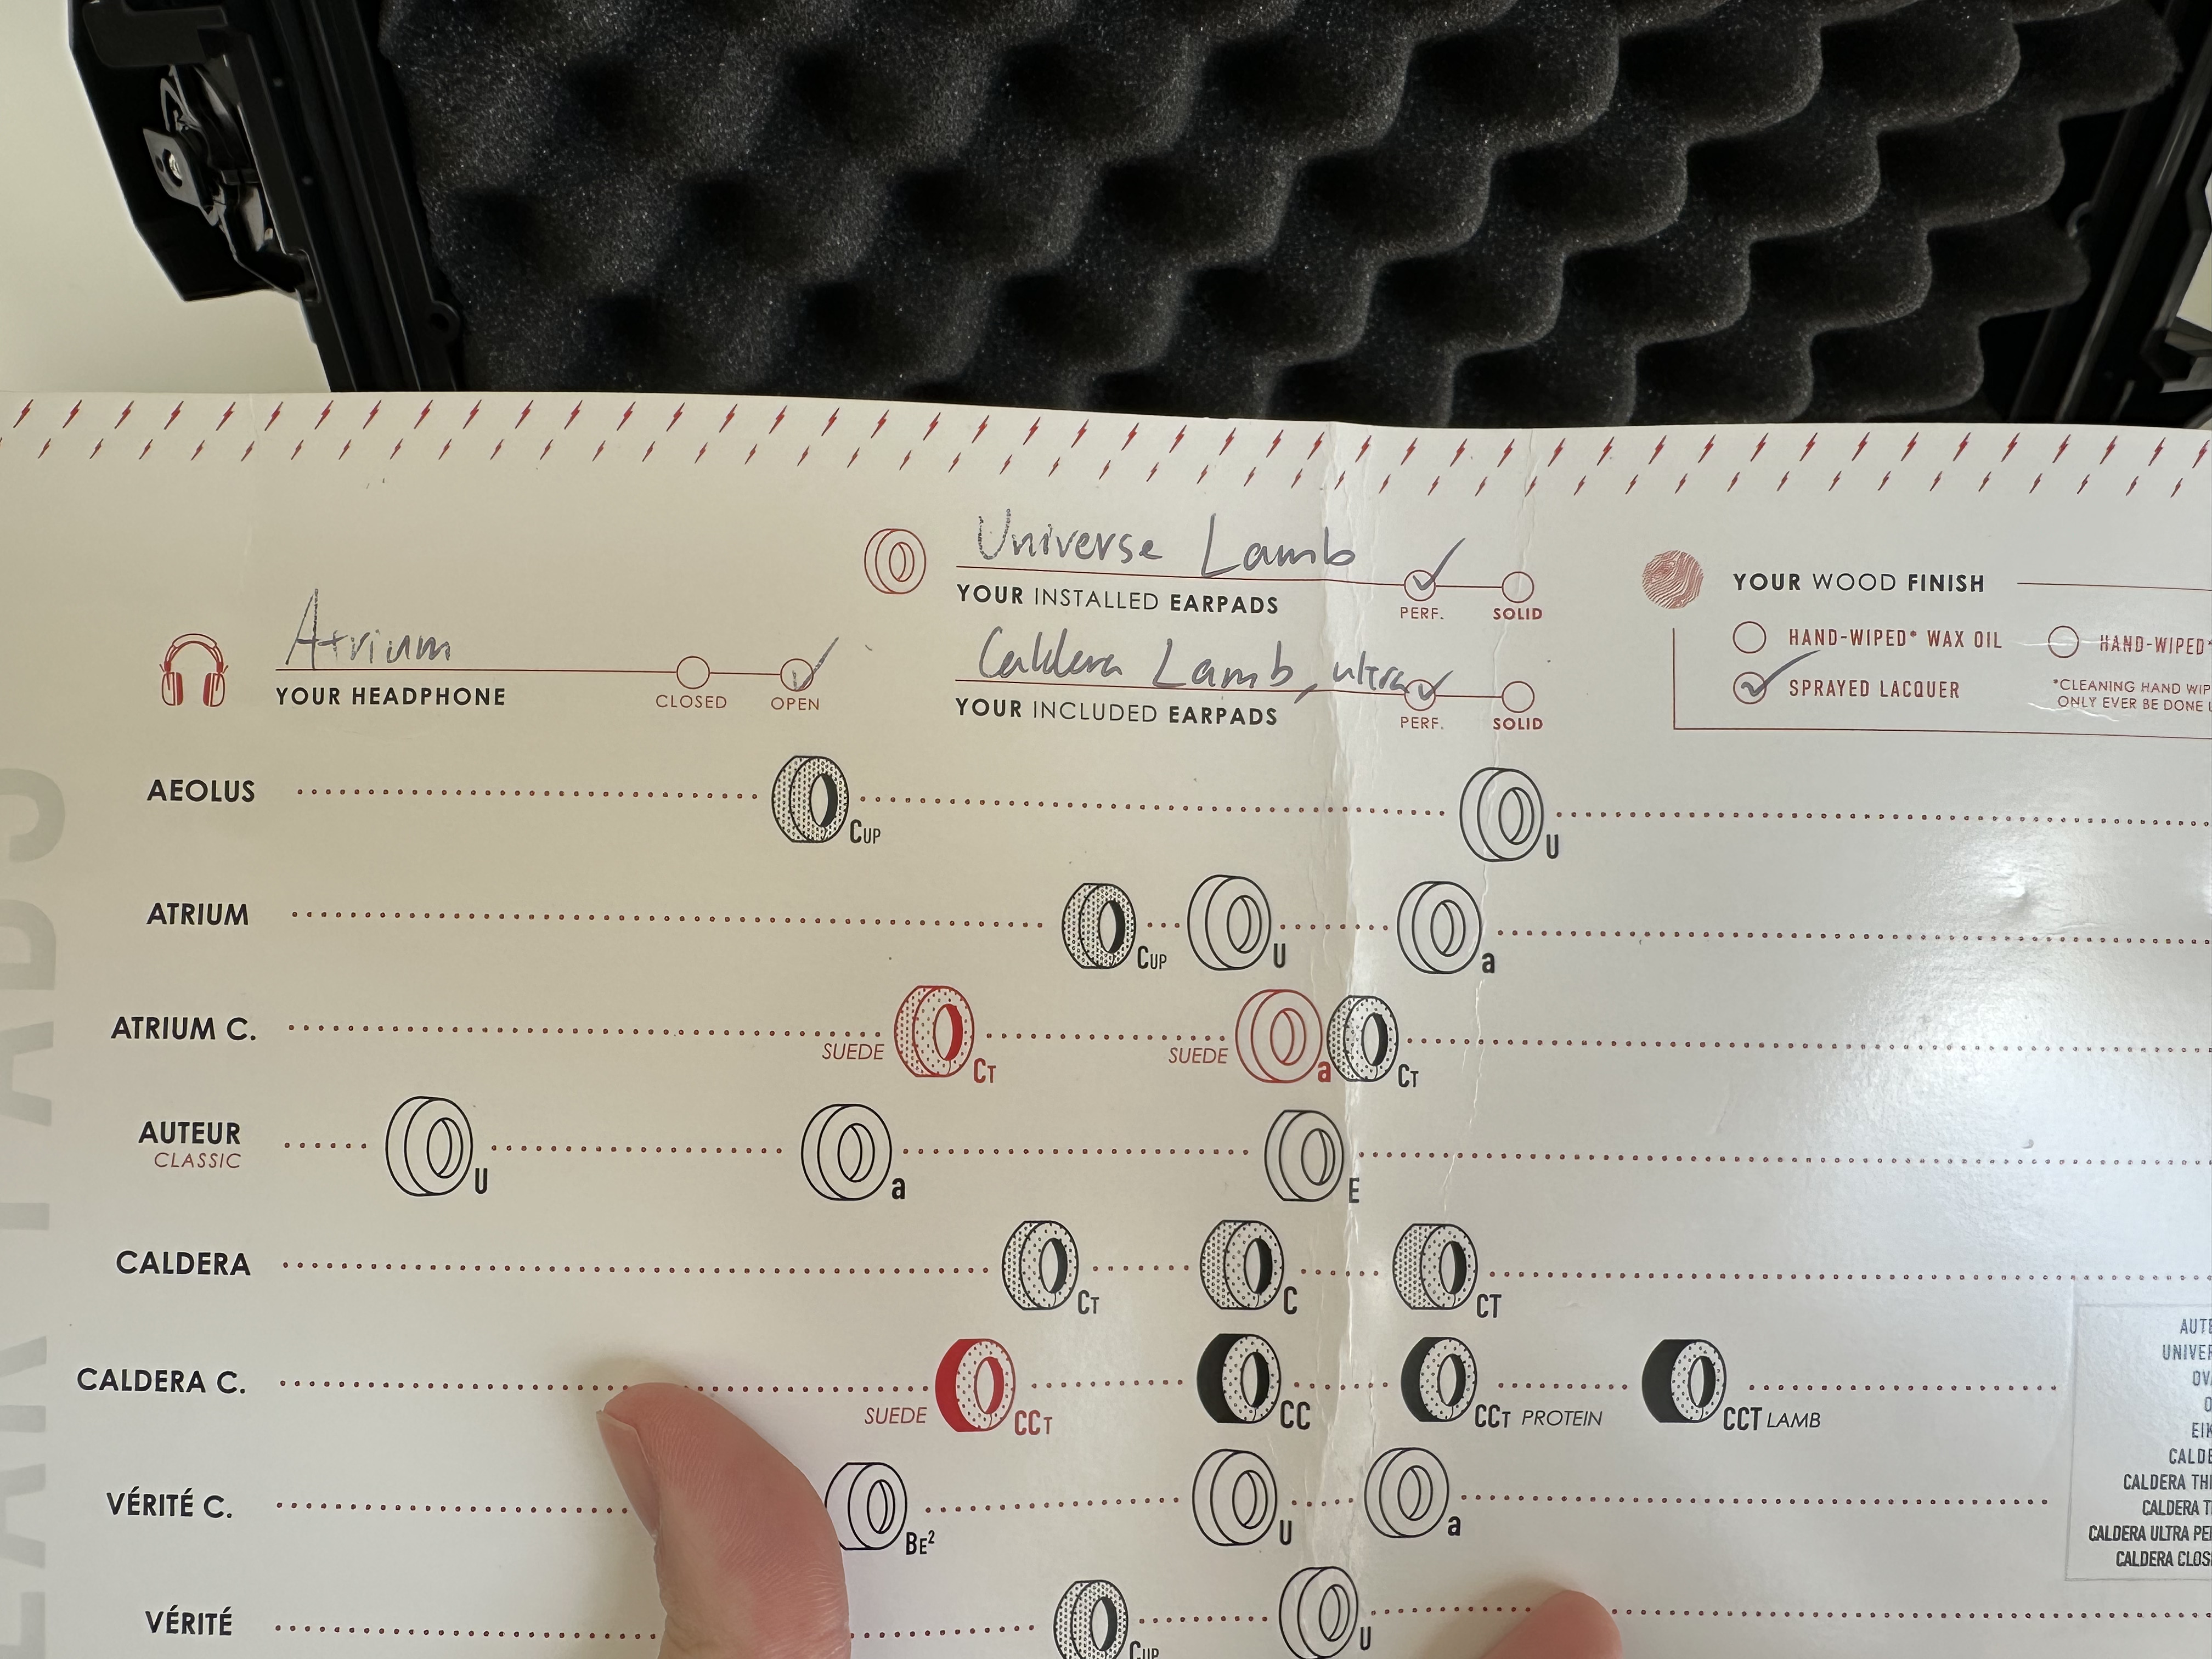 Universe Lamb
YOUR INSTALLED EARPADS
PERF. SOLID
Atrium
YOUR HEADPHONE
CLOSED OPEN
Caldera Lamb, ultra
YOUR INCLUDED EARPADS
PERF. SOLID
YOUR WOOD FINISH
HAND-WIPED* WAX OIL HAND-WIPED*
SPRAYED LACQUER
*CLEANING HAND WIP
ONLY EVER BE DONE
AEOLUS CUP U
ATRIUM CUP U a
ATRIUM C. SUEDE CT SUEDE a CT
AUTEUR CLASSIC U a E
CALDERA CT C CT
CALDERA C. SUEDE CCT CC CCT PROTEIN CCT LAMB
VÉRITÉ C. BE² U a
VÉRITÉ CUP U
AUTE
UNIVER
OV
O
EIK
CALDE
CALDERA THI
CALDERA T
CALDERA ULTRA PE
CALDERA CLOS
EAR PADS